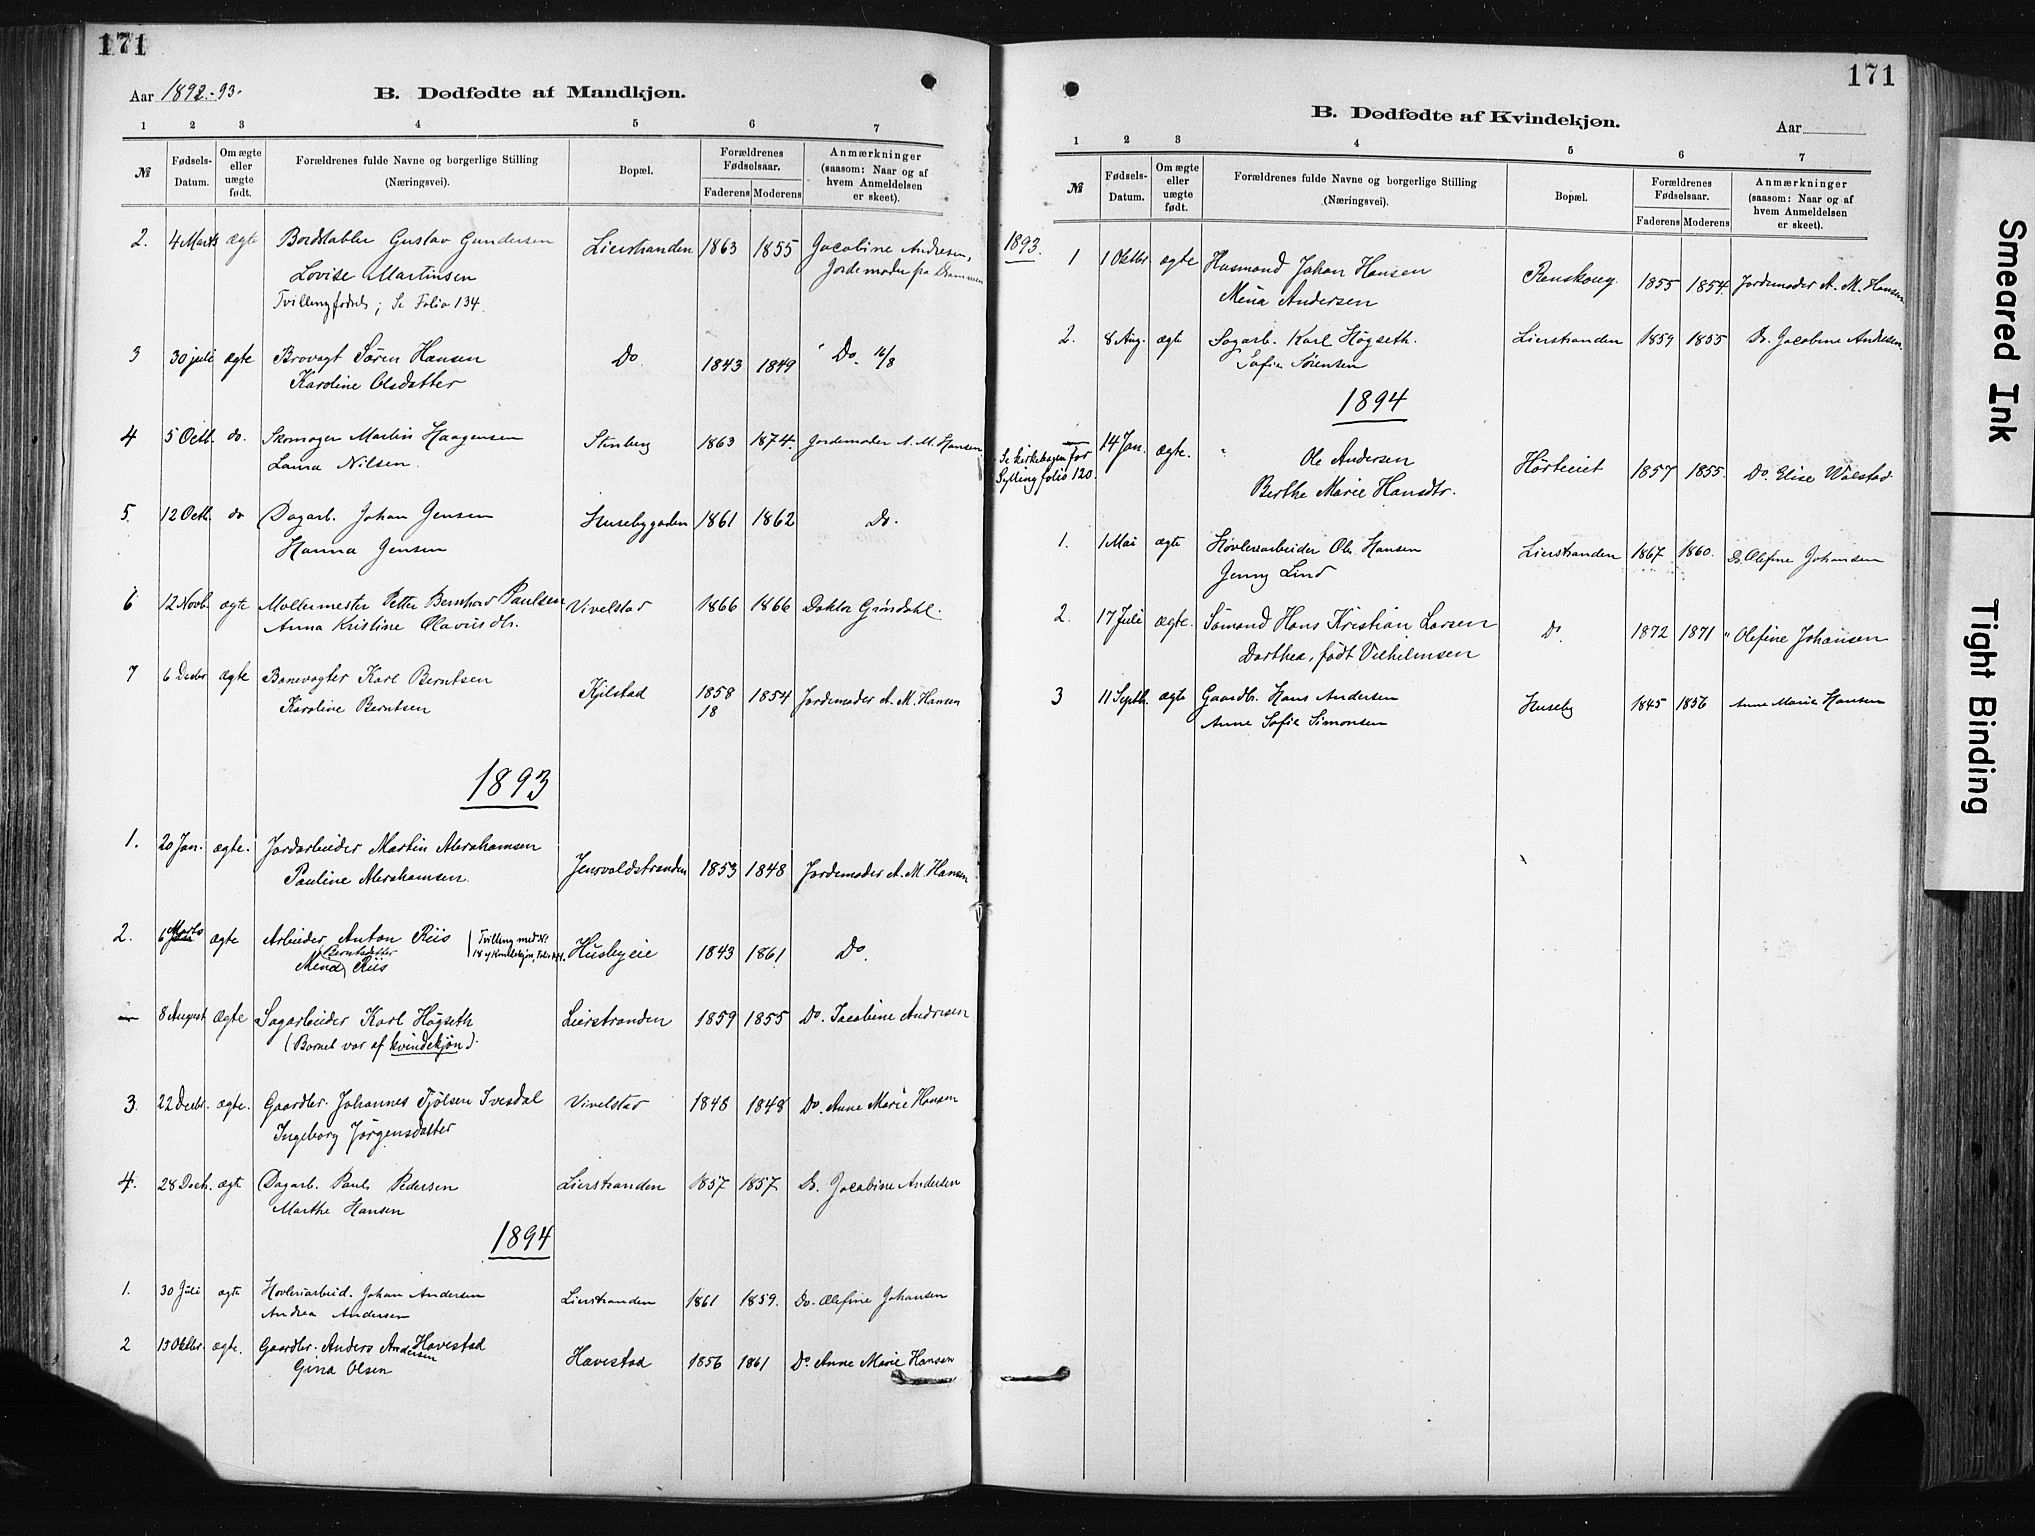 171
Aar 1892-93.
B. Dødfødte af Mandkjøn.
1 2 3 4 5 6 7
№
Fødsels-
Datum.
Om ægte
eller
uægte
født.
Forældrenes fulde Navne og borgerlige Stilling
(Næringsvei).
Bopæl.
Forældrenes
Fødselsaar.
Faderens Moderens
Anmærkninger
(saasom: Naar og af
hvem Anmeldelsen
er skeet).
2. 4 Marts ægte Bordstabler Gustav Gundersen Lierstranden 1863 1855 Jacobine Andresen,
Lovise Martinsen Jordemoder fra Drammen
Tvillingfødsel; Se Folio 134.
3 30 juli ægte Brovagt Søren Hansen Do 1843 1849 Do. 16/8
Karoline Olsdatter
4 5 Octb. do. Skomager Martin Haagensen Stenberg 1863 1874. Jordemoder A. M. Hansen
Laura Nilsen.
5. 12 Octb. do Dagarb. Johan Jensen Husebygaden 1861 1862 Do.
Hanna Jensen
6 12 Novb. ægte Møllermester Petter Bernhard Paulsen Vivelstad 1866 1866 Doktor Grøndahl.
Anna Kristine Olavusdtr.
7 6 Decbr ægte Banevogter Karl Berntsen Kjilstad 1858 1854 Jordemoder A. M. Hansen
Karoline Berntsen 18
1893
1. 20 Jan. ægte. Jordarbeider Martin Abrahamsen
Pauline Abrahamsen. Jensvoldstranden 1853 1848 Jordemoder A. M. Hansen
2. 6 Marts ægte Arbeider Anton Riis Tvilling med №
Berntsdatter
Mina Riis Husbyeie 1843 1861 Do.
— 8 August ægte Sagarbeider Karl Høgseth Lierstranden 1859 1855 Do. Jacobine Andresen
(Barnet var af kvindekjøn).
3. 22 Decbr. ægte. Gaardbr. Johannes Tjølsen Ivesdal Vivelstad 1848 1848 Do. Anne Marie Hansen
Ingeborg Jørgensdatter
4. 28 Decb. ægt Dagarb. Paul Pedersen Lierstranden 1857 1857 Do. Jacobine Andersen
Marthe Hansen
1894
1. 30 Juli ægte Høvleriarbeid. Johan Andersen Lierstranden 1861 1859. Do. Olefine Johansen
Andrea Andersen
2 15 Oktbr. ægte. Gaardbr. Anders Andersen Havestad Havestad 1856 1861 Do Anne Marie Hansen
Gina Olsen
171
B. Dødfødte af Kvindekjøn.
Aar
1 2 3 4 5 6 7
№
Fødsels-
Datum.
Om ægte
eller
uægte
født.
Forældrenes fulde Navne og borgerlige Stilling
(Næringsvei).
Bopæl.
Forældrenes
Fødselsaar.
Faderens Moderens
Anmærkninger
(saasom: Naar og af
hvem Anmeldelsen
er skeet).
1893.
1 1 Oktbr. ægte Husmand Johan Hansen Renskoug. 1855 1854. Jordemoder A. M. Hansen
Mina Andersen
2. 8 Aug. ægte Sagarb. Karl Høgseth. Lierstranden 1859 1855 Do. Jacobine Andresen.
Sofie Sørensen
1894
— 14 Jan. ægte. Ole Andersen Hørteiet 1857 1855. Do. Elise Wolstad.
Se kirkebogen for
Sylling folio 120. Berthe Marie Hansdtr.
1. 1 Mai ægte Høvleriarbeider Ole Hansen Lierstranden 1867 1860. Do. Olefine Johansen
Jenny Lind
2. 17 Juli ægte. Sømand Hans Kristian Larsen Do. 1872 1871 " Olefine Johansen
Dorthea, født Vilhelmsen
3 11 Septb. ægte Gaardbr. Hans Andersen Huseby 1845 1856 Anne Marie Hansen
Anne Sofie Simonsen
Smeared Ink
Tight Binding